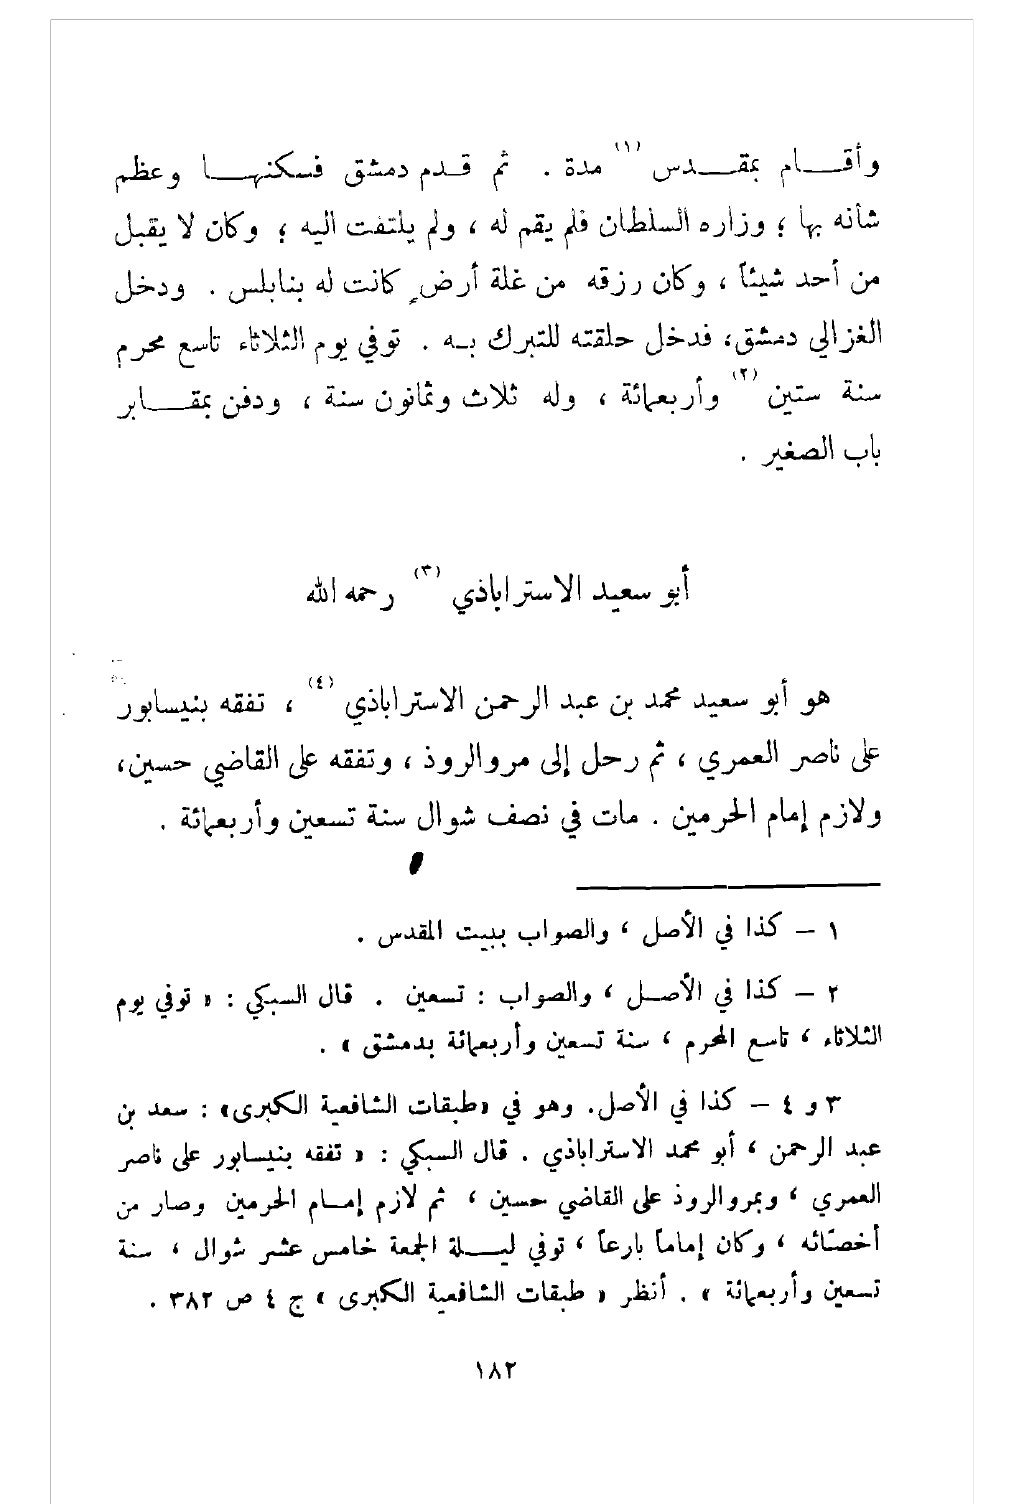 وأقـــام بمقـــدس (١) مدة . ثم قـدم دمشق فسكنهـــا وعظم
شأنه بها ؛ وزاره السلطان فلم يقم له ، ولم يلتفت اليه ؛ وكان لا يقبل
من أحد شيئاً ، وكان رزقه من غلة أرضٍ كانت له بنابلس . ودخل
الغزالي دمشق، فدخل حلقته للتبرك بـه . توفي يوم الثلاثاء تاسع محرم
سنة ستين (٢) وأربعمائة ، وله ثلاث وثمانون سنة ، ودفن بمقـــابر
باب الصغير .
أبو سعيد الاستراباذي (٣) رحمه الله
هو أبو سعيد محمد بن عبد الرحمن الاستراباذي (٤) ، تفقه بنيسابور
على ناصر العمري ، ثم رحل إلى مروالروذ ، وتفقه على القاضي حسين،
ولازم إمام الحرمين . مات في نصف شوال سنة تسعين وأربعمائة .
١ – كذا في الأصل ، والصواب ببيت المقدس .
٢ – كذا في الأصـل ، والصواب : تسعين . قال السبكي : « توفي يوم
الثلاثاء ، تاسع المحرم ، سنة تسعين وأربعمائة بدمشق » .
٣ و ٤ – كذا في الأصل. وهو في «طبقات الشافعية الكبرى» : سعد بن
عبد الرحمن ، أبو محمد الاستراباذي . قال السبكي : « تفقه بنيسابور على ناصر
العمري ، وبمروالروذ على القاضي حسين ، ثم لازم إمـام الحرمين وصار من
أخصّائه ، وكان إماماً بارعاً ، توفي ليـــلة الجمعة خامس عشر شوال ، سنة
تسعين وأربعمائة » . أنظر « طبقات الشافعية الكبرى » ج ٤ ص ٣٨٢ .
١٨٢